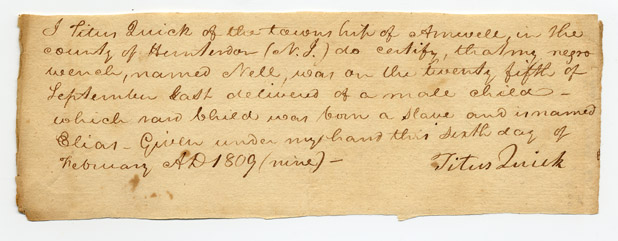 I Titus Quick of the township of Amwell, in the
county of Hunterdon (N.J.) do certify, that my negro
wench, named Nell, was on the twenty fifth of
September last delivered of a male child –
which said Child was born a slave and is named
Elias – Given under my hand this sixth day of
February AD 1809 (nine) –
Titus Quick